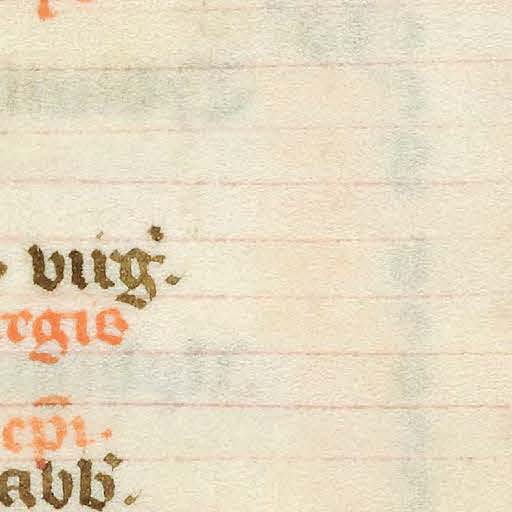 virg̾.
rgis
ep̄i.
abb̾.